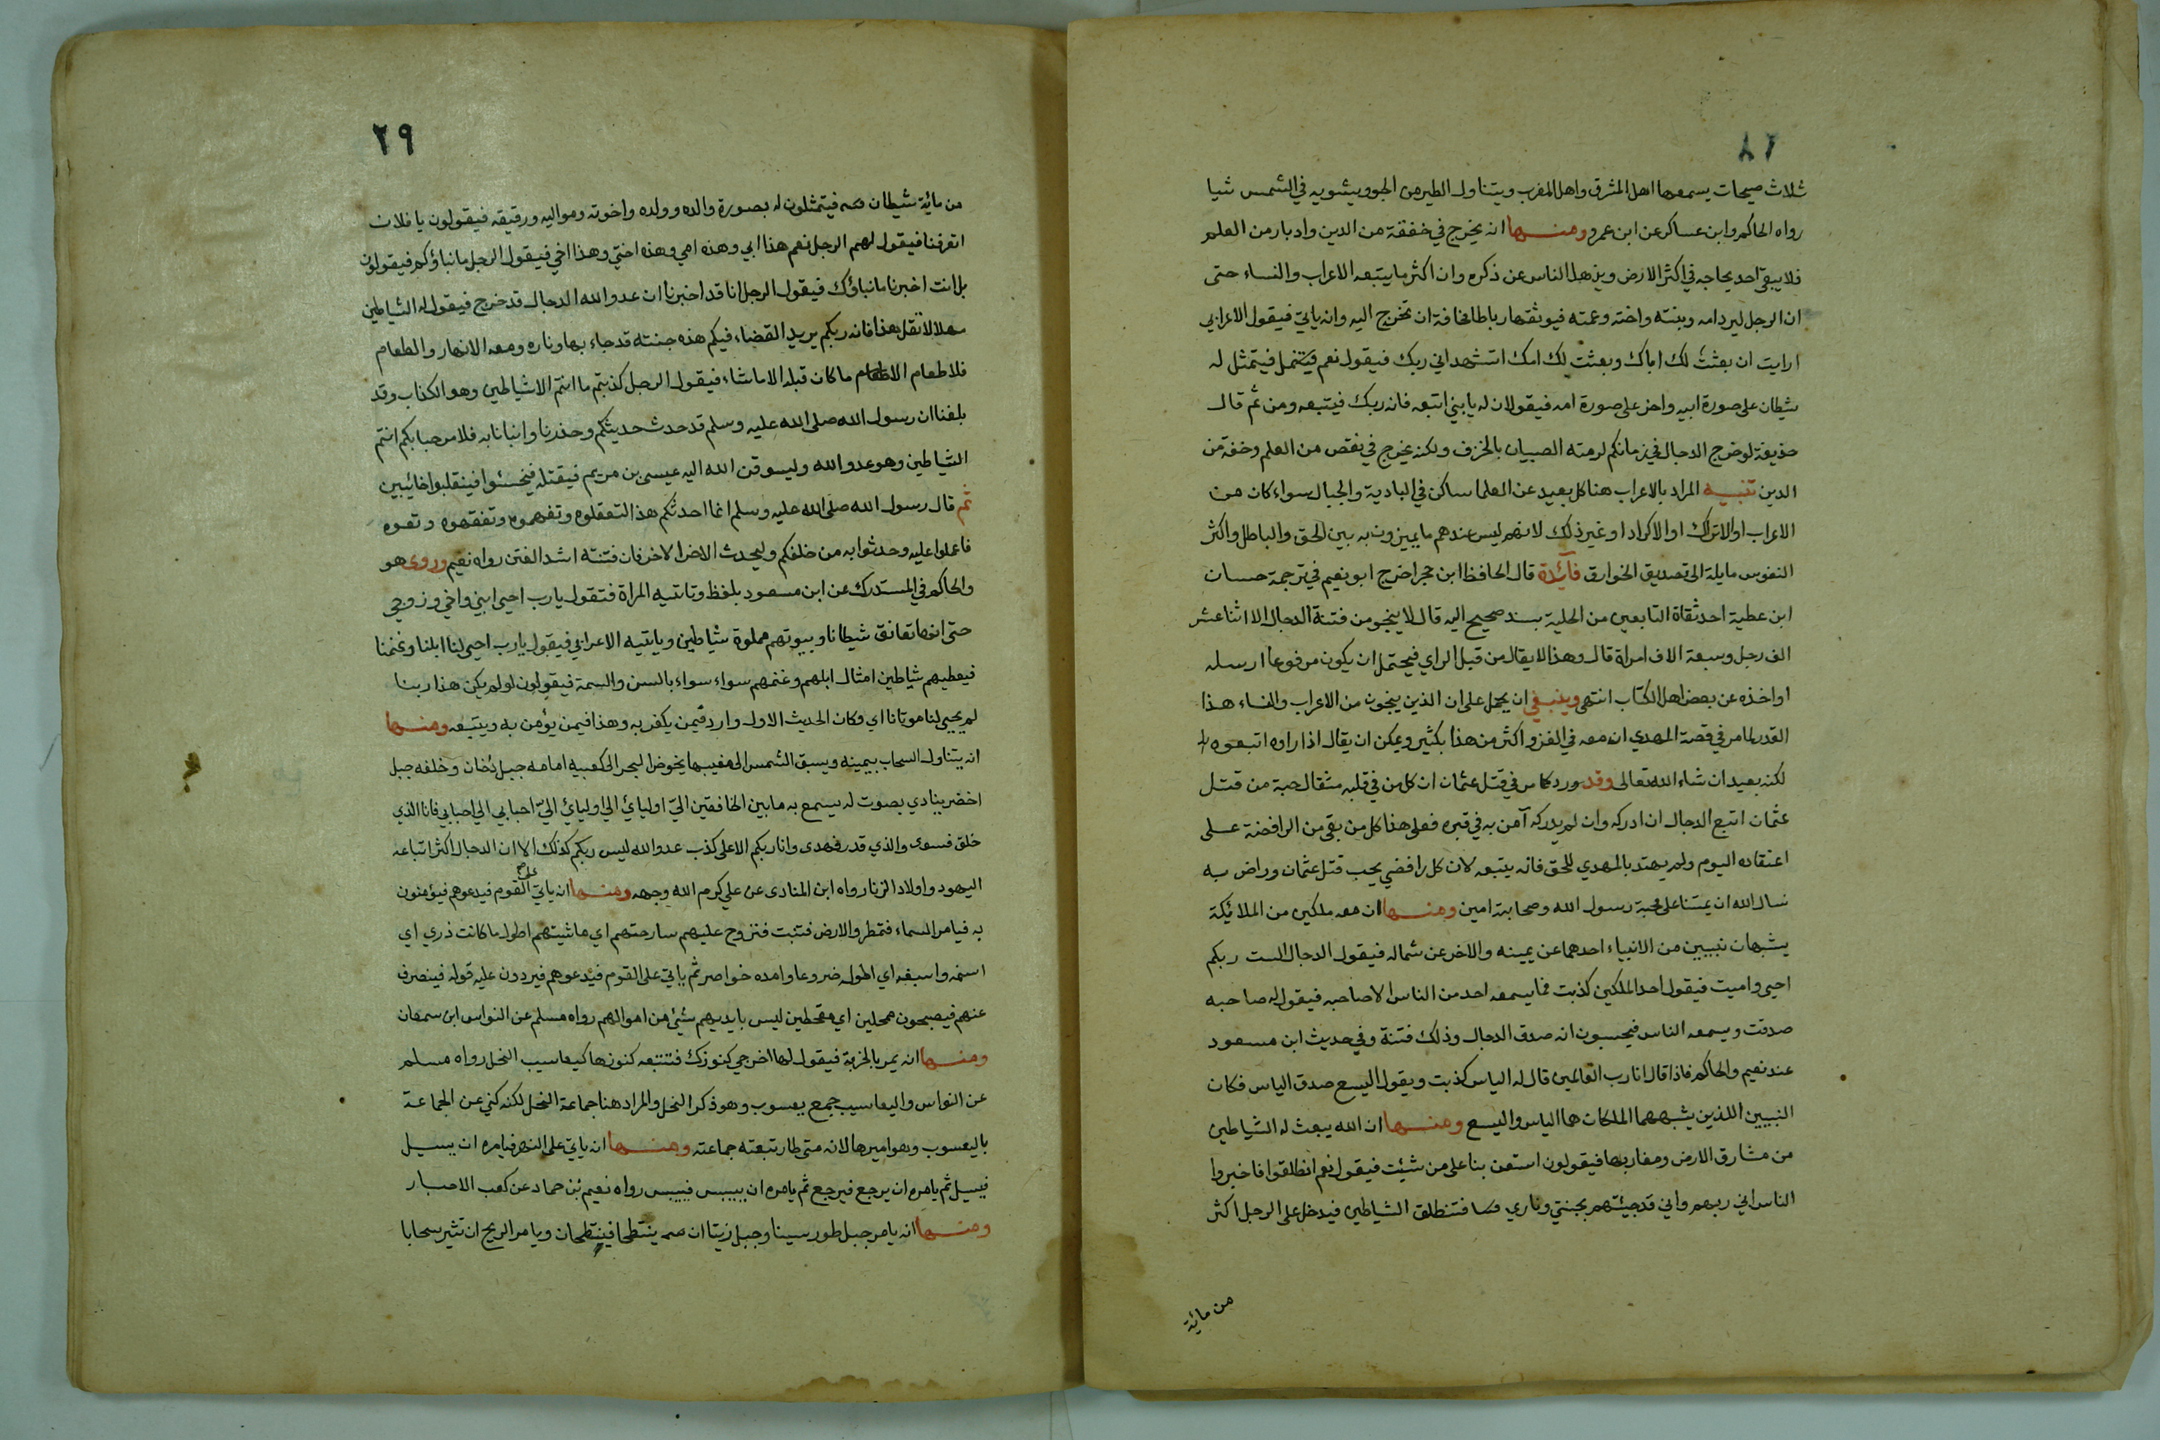 ٢٨
ثلاث صيحات يسمعها اهل المشرق واهل المغرب ويتناول الطير من الجو ويشويه في الشمس شيا
رواه الحاكم وابن عساكر عن ابن عمرو ومنها انه يخرج في خفقة من الدين وادبار من العلم
فلا يبقى احد يحاجه في اكثر الارض ويذهل الناس عن ذكره وان اكثر ما يتبعه الاعراب والنساء حتى
ان الرجل ليرد امه وبنته واخته وعمته فيوثقها رباطا مخافة ان تخرج اليه وانه ياتي فيقول الاعرابي
ارايت ان بعثت لك اباك وبعثت لك امك اتشهد اني ربك فيقول نعم فيتمثل له
شيطان على صورة ابيه واخر على صورة امه فيقولان له يا بني اتبعه فانه ربك فيتبعه ومن ثم قال
حذيفة لو خرج الدجال في زمانكم لرمته الصبيان بالخزف ولكنه يخرج في نقص من العلم وخفة من
الدين تنبيه المراد بالاعراب هنا كل بعيد عن العلما ساكن في البادية والجبال سواء كان من
الاعراب او الاتراك او الاكراد او غير ذلك لانهم ليس عندهم ما يميزون به بين الحق والباطل واكثر
النفوس مايلة الى تصديق الخوارق فائدة قال الحافظ ابن حجر اخرج ابو نعيم في ترجمة حسان
ابن عطية احد ثقاة التابعين من الحلية بسند صحيح اليه قال لا ينجو من فتنة الدجال الا اثنا عشر
الف رجل وسبعة الاف امراة قال وهذا لا يقال من قبل الراي فيحتمل ان يكون مرفوعا ارسله
او اخذه عن بعض اهل الكتاب انتهى وينبغي ان يحمل على ان الذين ينجون من الاعراب والنساء هذا
القدر لما مر في قصة المهدي ان معه في الغزو اكثر من هذا بكثير ويمكن ان يقال اذا راوه اتبعوه
لكنه بعيد ان شاء الله تعالى وقد ورد كما مر في قتل عثمان ان كل من في قلبه مثقال حبة من قتل
عثمان اتبع الدجال ان ادركه وان لم يدركه آمن به في قبره فعلى هذا كل من بقي من الرافضة على
اعتقاده اليوم ولم يهتد بالمهدي للحق فانه يتبعه لان كل رافضي يحب قتل عثمان وراض به
نسال الله ان يميتنا على محبة رسول الله وصحابته امين ومنها ان معه ملكين من الملائكة
يشبهان نبيين من الانبياء احدهما عن يمينه والاخر عن شماله فيقول الدجال الست ربكم
احيي واميت فيقول احد الملكين كذبت فما يسمعه احد من الناس الا صاحبه فيقول له صاحبه
صدقت ويسمعه الناس فيحسبون انه صدق الدجال وذلك فتنة وفي حديث ابن مسعود
عند نعيم والحاكم فاذا قال انا رب العالمين قال له الياس كذبت ويقول اليسع صدق الياس فكان
النبيين اللذين يشبههما الملكان هما الياس واليسع ومنها ان الله يبعث له الشياطين
من مشارق الارض ومغاربها فيقولون استعن بنا على من شئت فيقول نعم انطلقوا فاخبروا
الناس اني ربهم واني قد جئتهم بجنتي وناري فتنطلق الشياطين فيدخل على الرجل اكثر
من مائية
٢٩
من مائية شيطان فيتمثلون له بصورة والده وولده واخوته ومواليه ورقيقه فيقولون يا فلان
اتعرفنا فيقول لهم الرجل نعم هذا ابي وهذه امي وهذه اختي وهذا اخي فيقول الرجل ما نباؤكم فيقولون
بل انت اخبرنا ما نباؤك فيقول الرجل انا قد اخبرنا ان عدو الله الدجال قد خرج فيقول له الشياطين
مهلا لا تقل هذا فانه ربكم يريد القضاء فيكم هذه جنته قد جاء بها وناره ومعه الانهار والطعام
فلا طعام الا ما كان قبله الا ماشاء فيقول الرجل كذبتم ما انتم الا شياطين وهو الكذاب وقد
بلغنا ان رسول الله صلى الله عليه وسلم قد حدث حديثكم وحذرنا وانبانا به فلا مرحبا بكم انتم
الشياطين وهو عدو الله وليسوقن الله اليه عيسى بن مريم فيقتله فيخسئوا فينقلبوا خائبين
ثم قال رسول الله صلى الله عليه وسلم انما احدثكم هذا لتعقلوه وتفهموه وتفقهوه وتعوه
فاعملوا عليه وحدثوا به من خلفكم وليحدث الاخر الاخر فان فتنته اشد الفتن رواه نعيم وروى هو
والحاكم في المستدرك عن ابن مسعود بلفظ وتاتيه المراة فتقول يا رب احيي ابني واخي وزوجي
حتى انها تعانق شيطانا وبيوتهم مملوة شياطين وياتيه الاعرابي فيقول يا رب احيي لنا ابلنا وغنمنا
فيعطيهم شياطين امثال ابلهم وغنمهم سواء سواء بالسن والسمة فيقولون لو لم يكن هذا ربنا
لم يحيي لنا موتانا اي وكان الحديث الاول وارد فيمن يكفر به وهذا فيمن يؤمن به ويتبعه ومنها
انه يتناول السحاب بيمينه ويسبق الشمس الى مغيبها يخوض البحر الى كعبيه امامه جبل دخان وخلفه جبل
اخضر ينادي بصوت له يسمع به ما بين الخافقين اليّ اوليائي الي اوليائي اليّ احبابي الي احبابي فانا الذي
خلق فسوى والذي قدر فهدى وانا ربكم الاعلى كذب عدو الله ليس ربكم كذلك الا ان الدجال اكثر اتباعه
اليهود واولاد الزنا رواه ابن المنادى عن علي كرم الله وجهه ومنها انه ياتي على القوم فيدعوهم فيؤمنون
به فيامر السماء فتمطر والارض فتنبت فتروح عليهم سارحتهم اي ماشيتهم اطول ما كانت ذري اي
اسنمه واسبغه اي اطوله ضروعا وامده خواصر ثم ياتي على القوم فيدعوهم فيردون عليه قوله فينصرف
عنهم فيصبحون ممحلين اي مقحطين ليس بايديهم شيئ من اموالهم رواه مسلم عن النواس ابن سمعان
ومنها انه يمر بالخربة فيقول لها اخرجي كنوزك فتتبعه كنوزها كيعاسيب النحل رواه مسلم
عن النواس واليعاسيب جمع يعسوب وهو ذكر النحل والمراد هنا جماعة النحل لكنه كني عن الجماعة
باليعسوب وهو اميرها لانه متى طار تبعته جماعته ومنها انه ياتي على النهر فيامره ان يسيل
فيسيل ثم يامره ان يرجع فيرجع ثم يامره ان ييبس فييبس رواه نعيم بن حماد عن كعب الاحبار
ومنها انه يامر جبل طور سينا وجبل زيتا ان ينتطحا فينتطحان ويامر الريح ان تثير سحابا